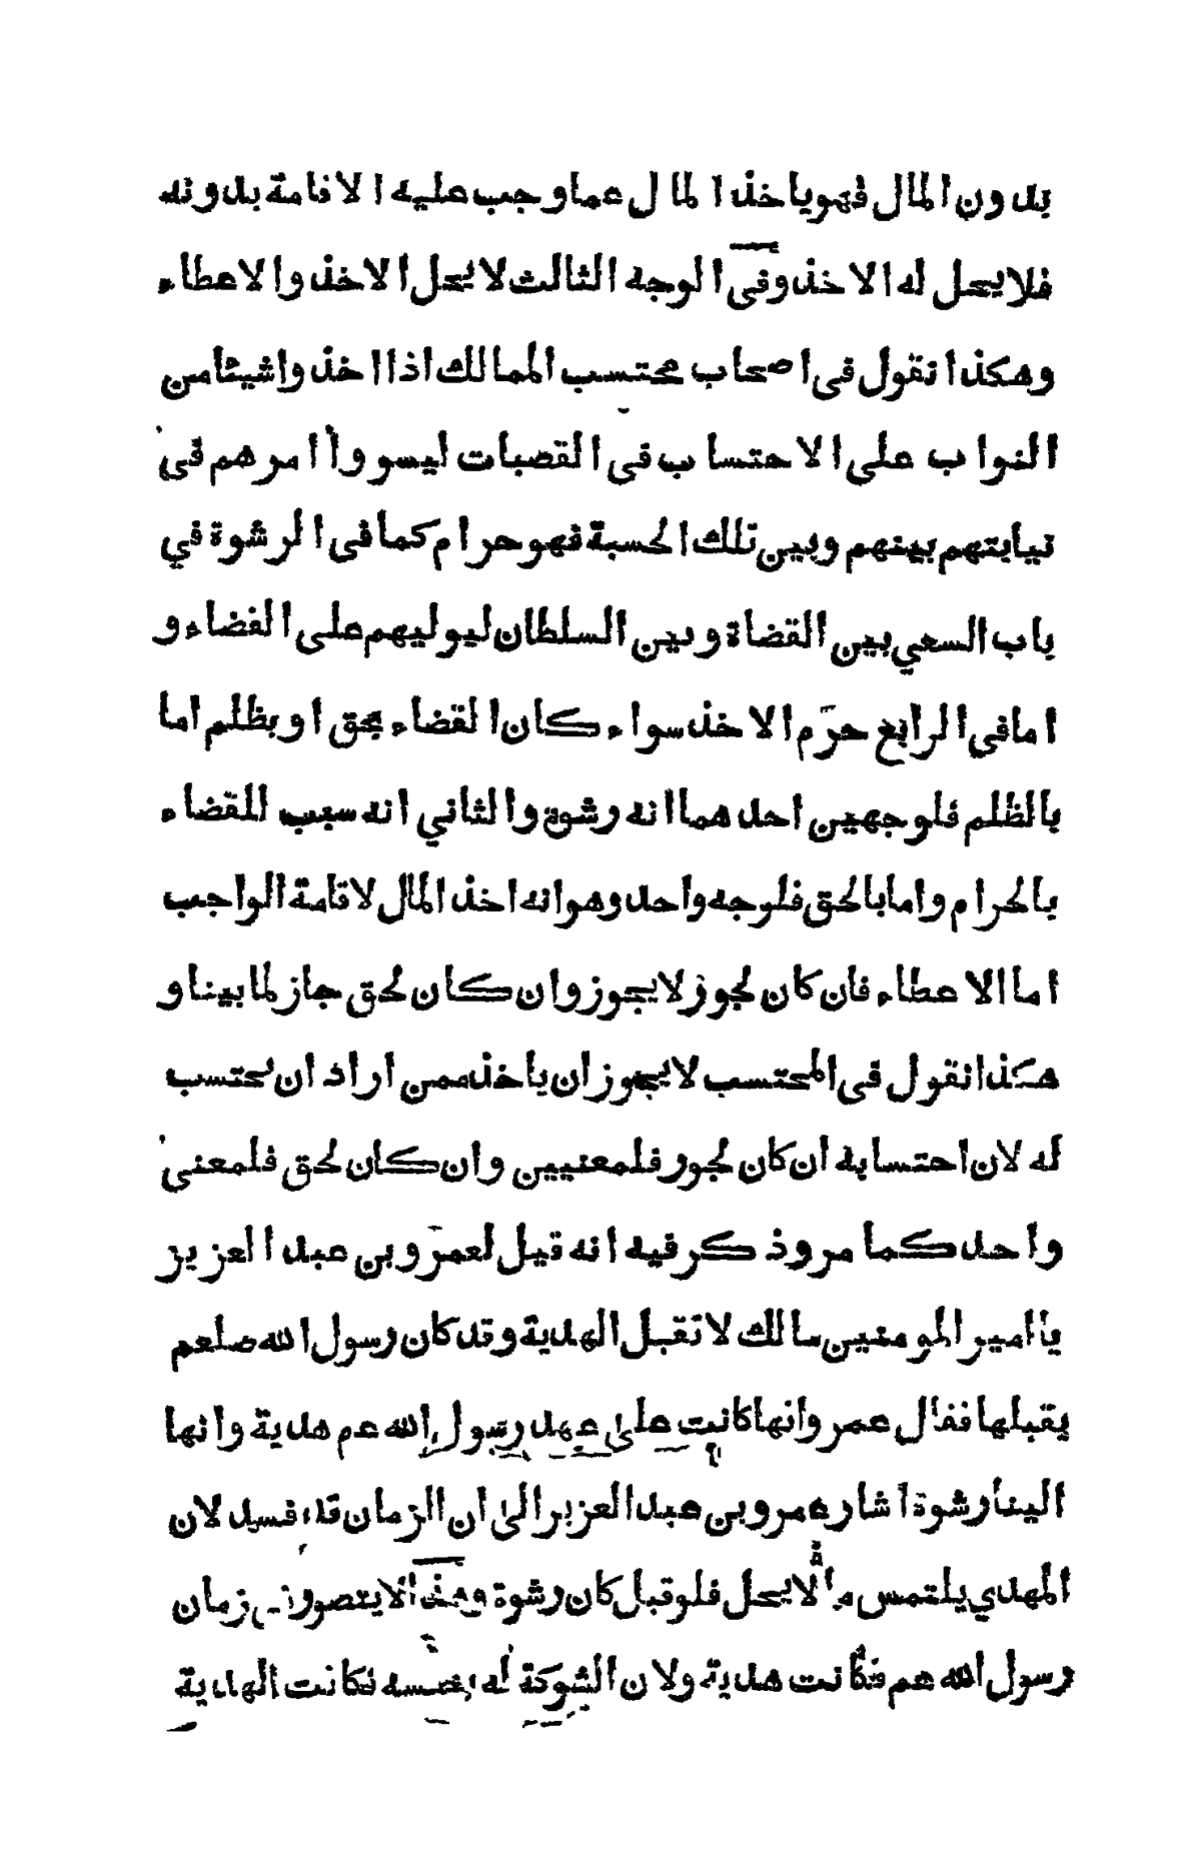 بدون المال فهو ياخذ المال عما وجب عليه الاقامة بدونه
فلا يحل له الاخذ وفى الوجه الثالث لا يحل الاخذ والاعطاء
وهكذا نقول فى اصحاب محتسب الممالك اذا اخذوا شيئا من
النواب على الاحتساب فى القصبات ليسووا امرهم فى
نيابتهم بينهم وبين تلك الحسبة فهو حرام كما فى الرشوة في
باب السعي بين القضاة وبين السلطان ليوليهم على القضاء و
اما فى الرابع حرم الاخذ سواء كان القضاء بحق او بظلم اما
بالظلم فلوجهين احدهما انه رشوة والثاني انه سبب للقضاء
بالحرام واما بالحق فلوجه واحد وهو انه اخذ المال لاقامة الواجب
اما الاعطاء فان كان لجوز لا يجوز وان كان لحق جاز لما بينا و
هكذا نقول فى المحتسب لا يجوز ان ياخذ ممن اراد ان يحتسب
له لان احتسابه ان كان لجور فلمعنيين وان كان لحق فلمعنى
واحد كما مر وذكر فيه انه قيل لعمرو بن عبد العزيز
يا امير المومنين مالك لا تقبل الهدية وقد كان رسول الله صلعم
يقبلها فقال عمر وانها كانت على عهد رسول الله عم هدية وانها
الينا رشوة اشار عمرو بن عبد العزيز الى ان الزمان قد فسد لان
المهدي يلتمس ما لا يحل فلو قبل كان رشوة وهذا لا يتصور زمان
رسول الله عم فكانت هدية ولان الشوكة له بنفسه فكانت الهدية